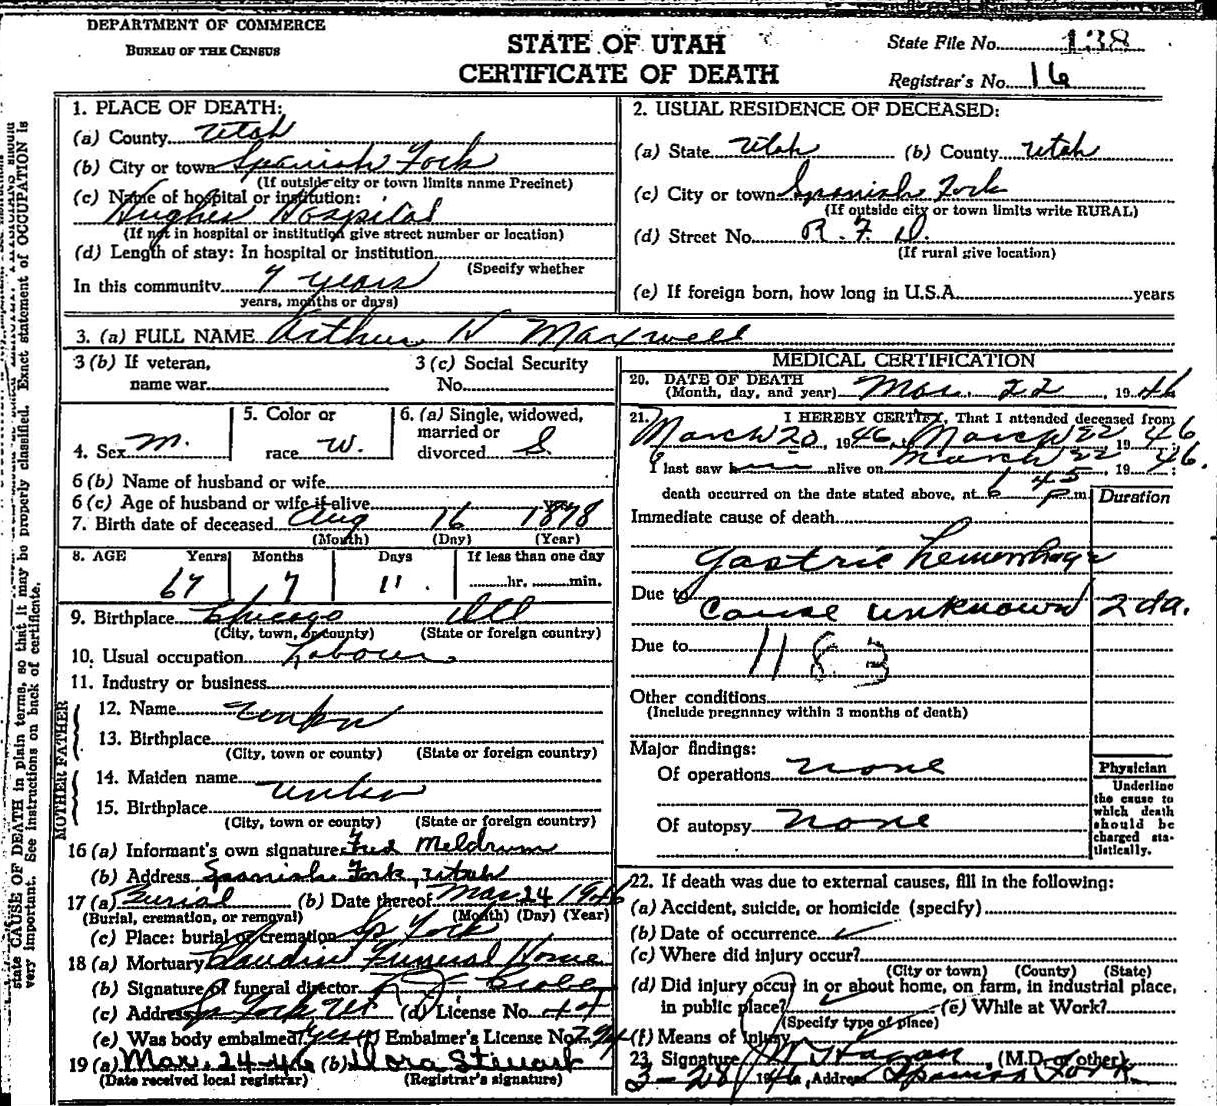 DEPARTMENT OF COMMERCE
BUREAU OF THE CENSUS
STATE OF UTAH
CERTIFICATE OF DEATH
State File No. 138
Registrar's No. 16
state CAUSE OF DEATH in plain terms, so that it may be properly classified. Exact statement of OCCUPATION is
very important. See instructions on back of certificate.
1. PLACE OF DEATH:
(a) County Utah
(b) City or town Spanish Fork
(If outside city or town limits name Precinct)
(c) Name of hospital or institution:
Hughes Hospital
(If not in hospital or institution give street number or location)
(d) Length of stay: In hospital or institution
(Specify whether
In this community 7 years
years, months or days)
2. USUAL RESIDENCE OF DECEASED:
(a) State Utah (b) County Utah
(c) City or town Spanish Fork
(If outside city or town limits write RURAL)
(d) Street No. R. F. D.
(If rural give location)
(e) If foreign born, how long in U.S.A. years
3. (a) FULL NAME Arthur H Maxwell
3 (b) If veteran,
name war
3 (c) Social Security
No.
4. Sex M.
5. Color or
race W.
6. (a) Single, widowed,
married or
divorced S.
6 (b) Name of husband or wife
6 (c) Age of husband or wife if alive years
7. Birth date of deceased Aug 16 1878
(Month) (Day) (Year)
8. AGE Years Months Days If less than one day
67 7 11 hr. min.
9. Birthplace Chicago Ill
(City, town, or county) (State or foreign country)
10. Usual occupation Laborer
11. Industry or business
FATHER
12. Name Unkn
13. Birthplace
(City, town or county) (State or foreign country)
MOTHER
14. Maiden name Unkn
15. Birthplace
(City, town or county) (State or foreign country)
16 (a) Informant's own signature Fred Meldrum
(b) Address Spanish Fork, Utah
17 (a) Burial (b) Date thereof Mar 24 1946
(Burial, cremation, or removal) (Month) (Day) (Year)
(c) Place: burial or cremation Sp Fork
18 (a) Mortuary Claudin Funeral Home
(b) Signature of funeral director
(c) Address Sp Fork Ut (d) License No.
(e) Was body embalmed? Yes (f) Embalmer's License No.
19 (a) Mar. 24-46 (b) Dora Stewart
(Date received local registrar) (Registrar's signature)
MEDICAL CERTIFICATION
20. DATE OF DEATH
(Month, day, and year) Mar. 22, 1946
21. I HEREBY CERTIFY, That I attended deceased from
March 20, 1946, to March 22 1946
I last saw him alive on March 22, 1946.
death occurred on the date stated above, at 1 45 p m
Duration
Immediate cause of death
Gastric hemorrhage
Due to cause unknown 2 da.
Due to 118 3
Other conditions
(Include pregnancy within 3 months of death)
Major findings:
Of operations none
Of autopsy none
Physician
Underline
the cause to
which death
should be
charged sta-
tistically.
22. If death was due to external causes, fill in the following:
(a) Accident, suicide, or homicide (specify)
(b) Date of occurrence ✓
(c) Where did injury occur?
(City or town) (County) (State)
(d) Did injury occur in or about home, on farm, in industrial place,
in public place? ✓ (e) While at Work?
(Specify type of place)
(f) Means of injury
23. Signature (M.D. or other)
3-28 1946, Address Spanish Fork